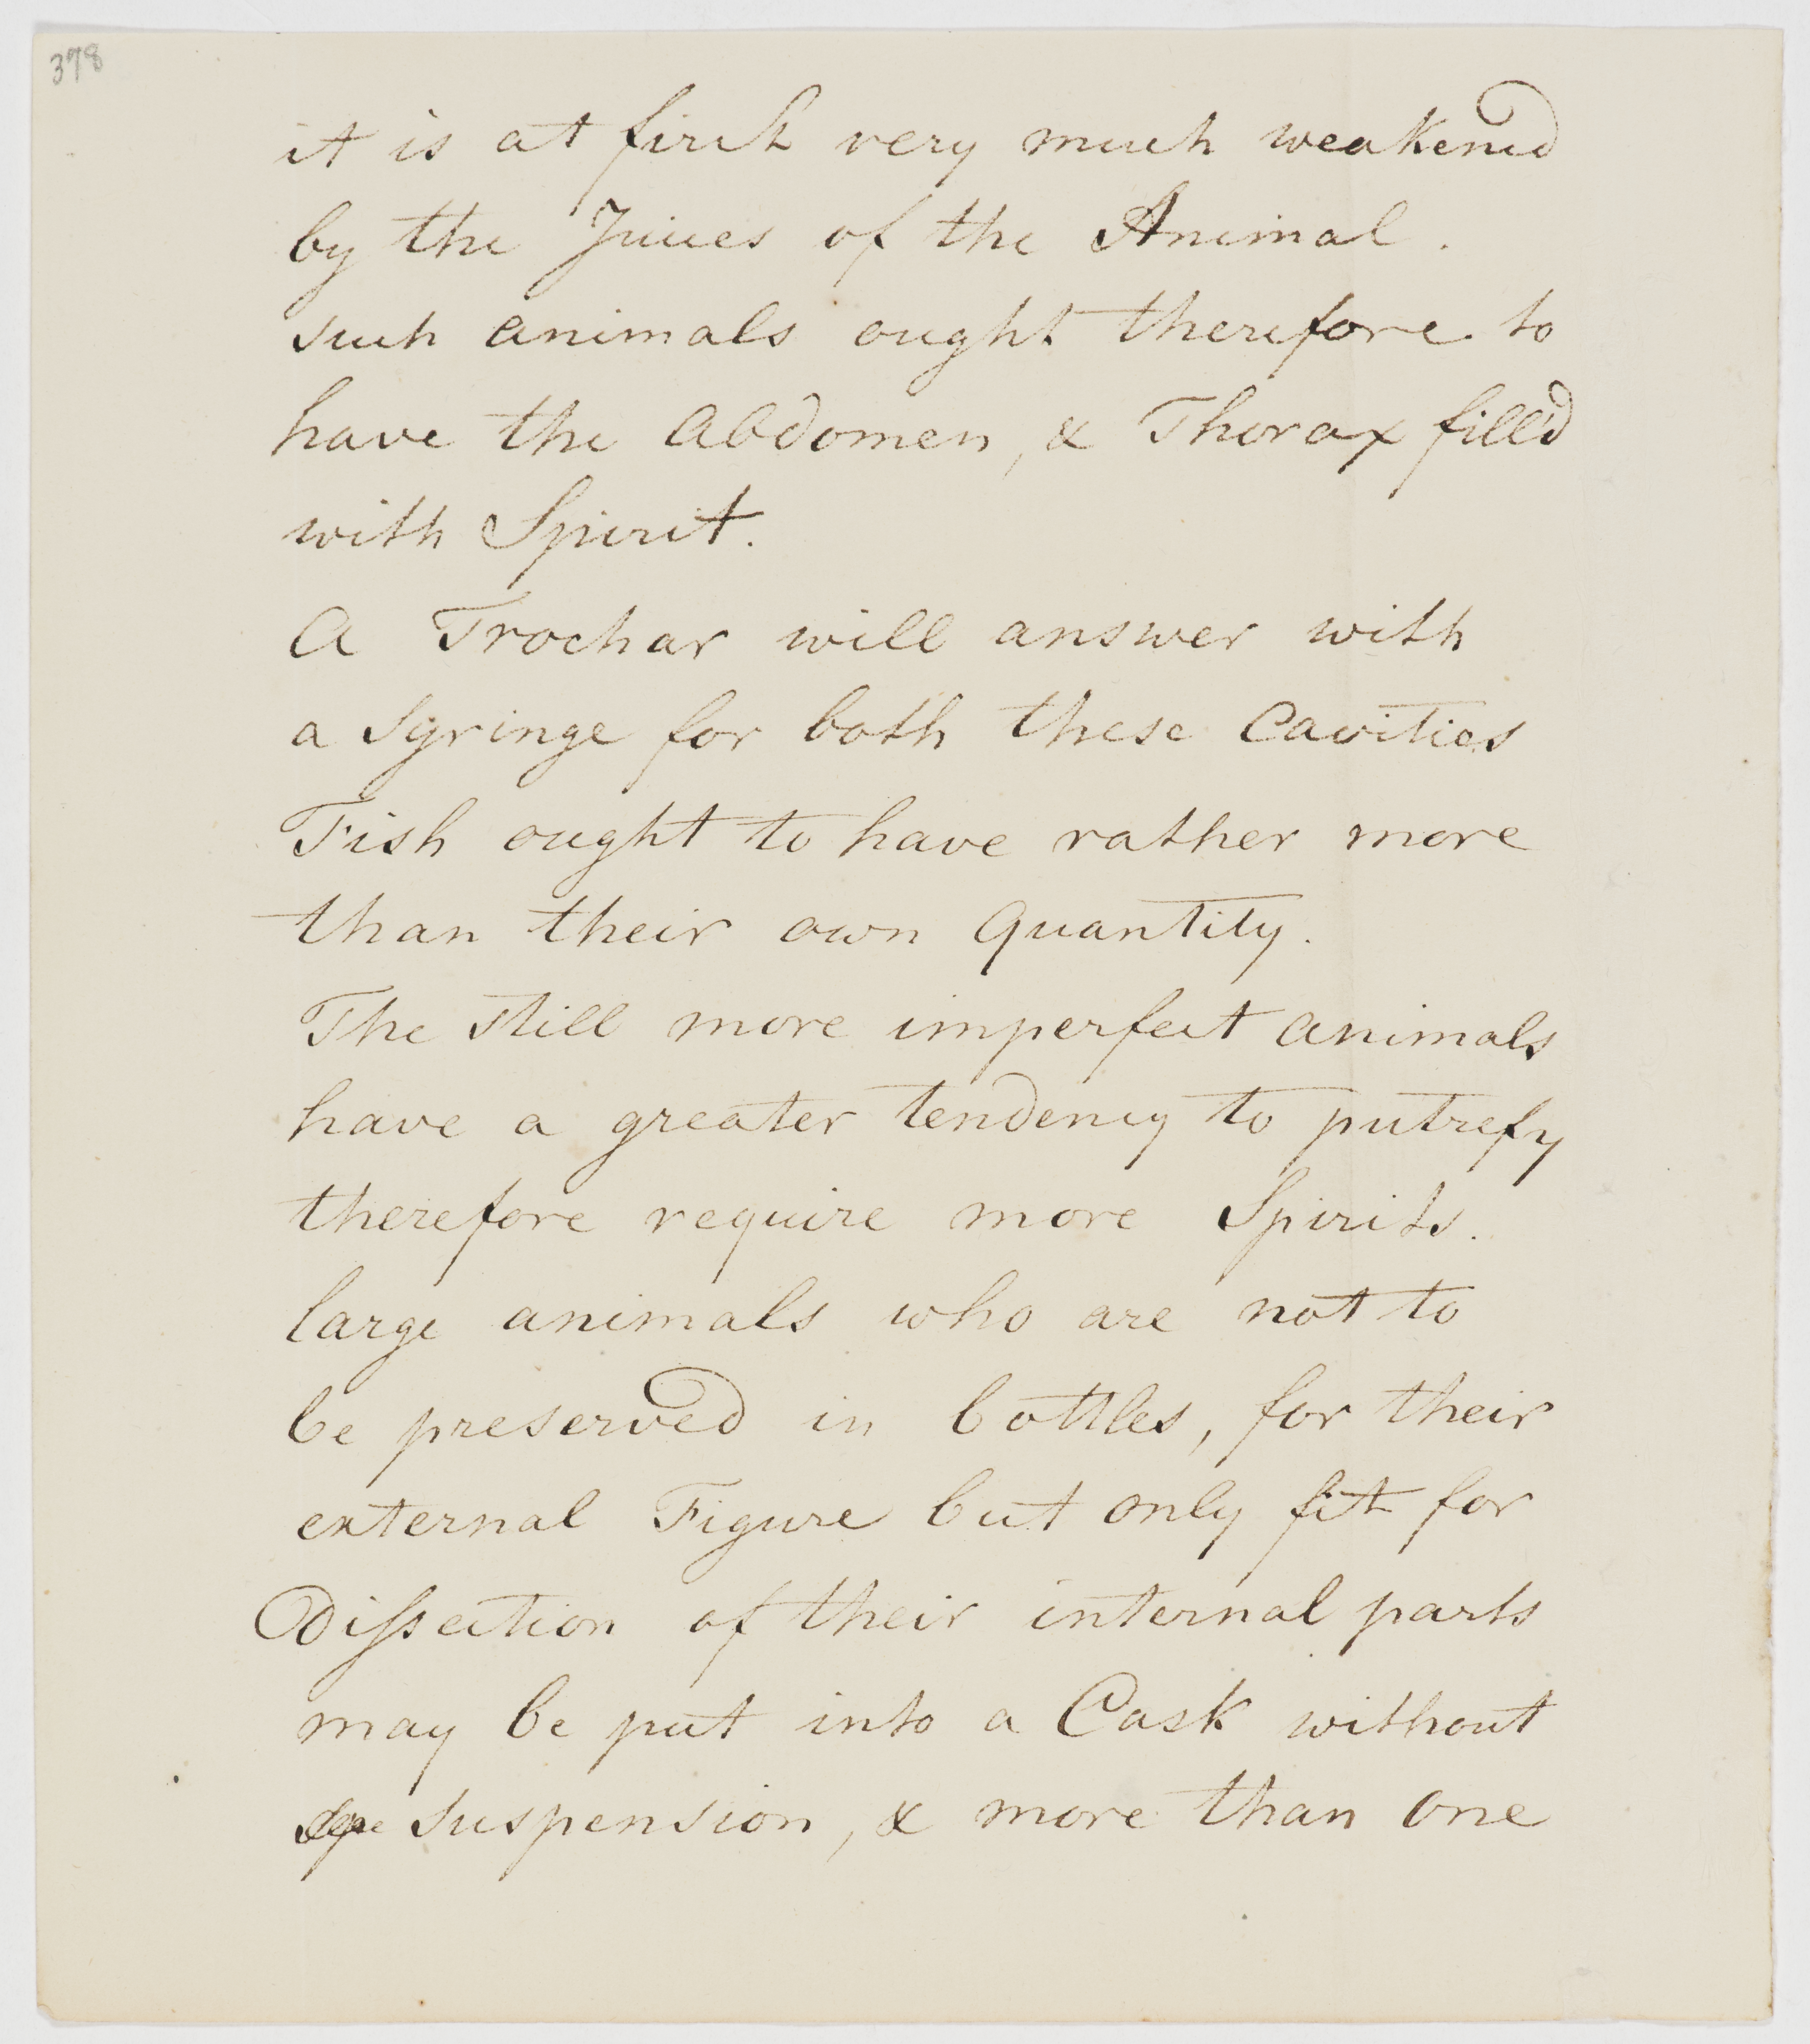 378
it is at first very much weakened
by the Juices of the Animal.
such animals ought therefore to
have the Abdomen, & Thorax fill'd
with Spirit.
A Trochar will answer with
a Syringe for both these Cavities
Fish ought to have rather more
than their own Quantity.
The still more imperfect animals
have a greater tendency to putrefy
therefore require more Spirits.
large animals who are not to
be preserved in bottles, for their
external Figure but only fit for
Dissection of their internal parts
may be put into a Cask without
suspension, & more than one